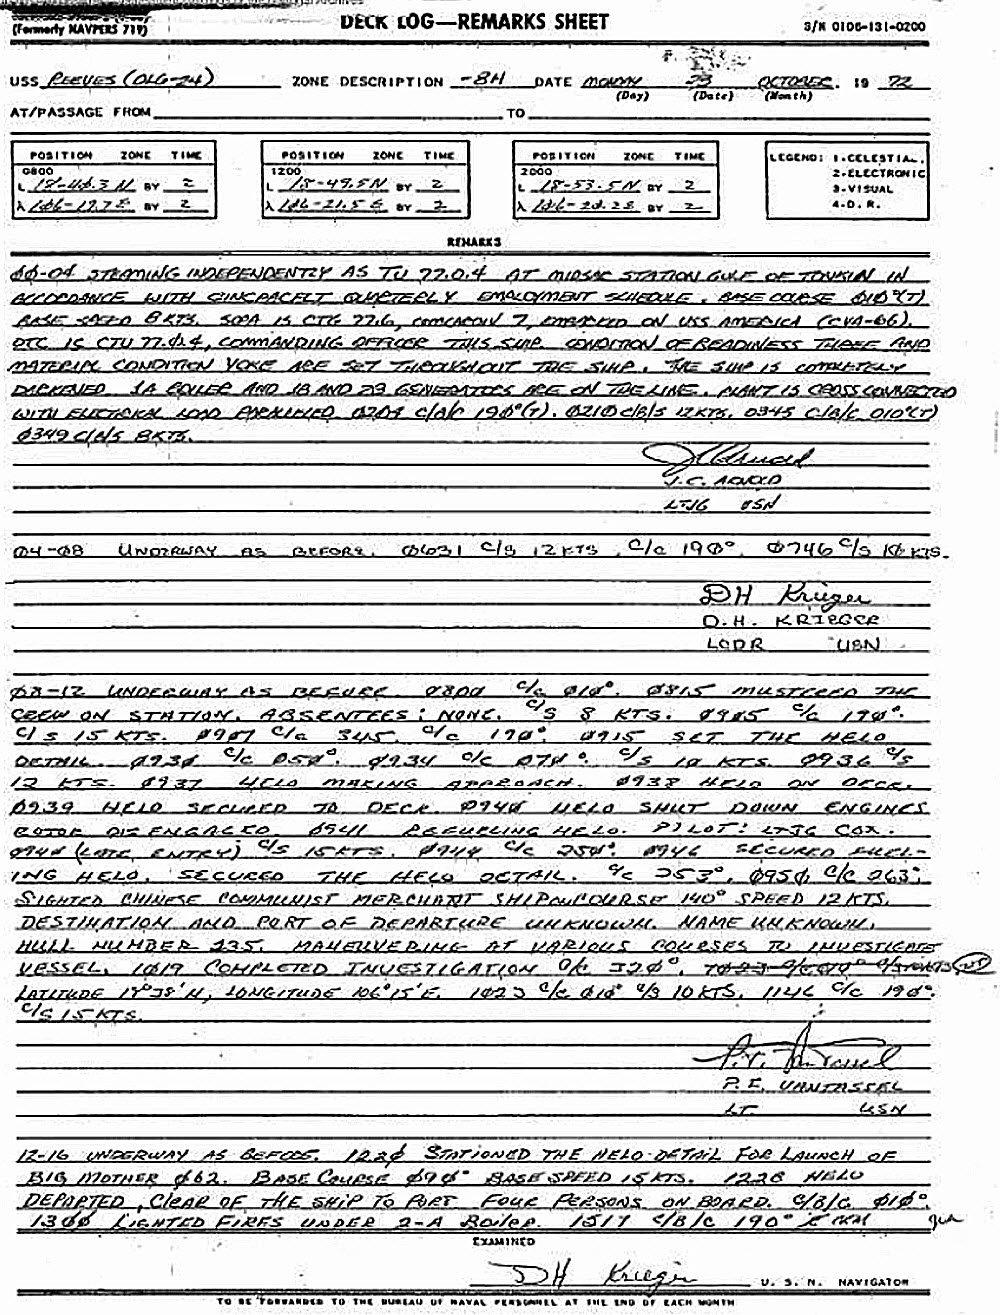 (Formerly NAVPERS 719)
DECK LOG—REMARKS SHEET
S/N 0106-131-0200
USS REEVES (DLG-24) ZONE DESCRIPTION -8H DATE MONDAY 23 OCTOBER, 19 72
(Day) (Date) (Month)
AT/PASSAGE FROM TO
POSITION ZONE TIME POSITION ZONE TIME POSITION ZONE TIME LEGEND: 1-CELESTIAL,
0800 1200 2000 2-ELECTRONIC
L BY 2 L 18-49.5N BY 2 L 18-53.5N BY 2 3-VISUAL
λ 106-17.7E BY 2 λ 106-21.5E BY 2 λ 106-20.2E BY 2 4-D.R.
REMARKS
ØØ-04 STEAMING INDEPENDENTLY AS TU 77.0.4 AT MIDSAR STATION GULF OF TONKIN IN
ACCORDANCE WITH CINCPACFLT QUARTERLY EMPLOYMENT SCHEDULE. BASE COURSE Ø1Ø°(T)
BASE SPEED 8 KTS. SOPA IS CTG 77.6, COMCARDIV 7, EMBARKED ON USS AMERICA (CVA-66).
OTC IS CTU 77.Ø.4, COMMANDING OFFICER THIS SHIP. CONDITION OF READINESS THREE AND
MATERIAL CONDITION YOKE ARE SET THROUGHOUT THE SHIP. THE SHIP IS COMPLETELY
DARKENED. 1A BOILER AND 1B AND 2B GENERATORS ARE ON THE LINE. PLANT IS CROSS CONNECTED
WITH ELECTRICAL LOAD PARALLELED. C/B/C 19Ø°(T). Ø21Ø C/B/S 12 KTS. 0345 C/B/C 010°(T)
Ø349 C/B/S 8 KTS.
J.C. ARNOLD
LTJG USN
Ø4-Ø8 UNDERWAY AS BEFORE. Ø6Ø31 C/S 12 KTS. C/C 19Ø°. Ø746 C/S 1Ø KTS.
DH Krieger
D.H. KRIEGER
LCDR USN
Ø8-12 UNDERWAY AS BEFORE. Ø8ØØ C/C Ø1Ø°. Ø815 MUSTERED THE
CREW ON STATION. ABSENTEES: NONE. C/S 8 KTS. Ø9Ø5 C/C 19Ø°.
C/S 15 KTS. Ø9Ø7 C/C 345. C/C 19Ø°. Ø915 SET THE HELO
DETAIL. Ø93Ø C/C Ø5Ø°. Ø934 C/C Ø7Ø°. C/S 1Ø KTS. Ø936 C/S
12 KTS. Ø937 HELO MAKING APPROACH. Ø938 HELO ON DECK.
Ø939 HELO SECURED TO DECK. Ø94Ø HELO SHUT DOWN ENGINES
ROTOR DISENGAGED. Ø941 REFUELING HELO. PILOT: LTJG COX.
Ø94Ø (LATE ENTRY) C/S 15 KTS. Ø944 C/C 25Ø°. Ø946 SECURED FUEL-
ING HELO. SECURED THE HELO DETAIL. C/C 253°. Ø95Ø C/C 263°.
SIGHTED CHINESE COMMUNIST MERCHANT SHIP ON COURSE 140° SPEED 12 KTS.
DESTINATION AND PORT OF DEPARTURE UNKNOWN. NAME UNKNOWN.
HULL NUMBER 235. MANEUVERING AT VARIOUS COURSES TO INVESTIGATE
VESSEL. 1Ø19 COMPLETED INVESTIGATION C/C 32Ø°. 1Ø23 C/C Ø1Ø° C/S 10 KTS
LATITUDE 19°38'N, LONGITUDE 106°15'E. 1Ø23 C/C Ø1Ø° C/S 10 KTS. 1146 C/C 19Ø°.
C/S 15 KTS.
P.E. VANTASSEL
LT USN
12-16 UNDERWAY AS BEFORE. 122Ø STATIONED THE HELO DETAIL FOR LAUNCH OF
BIG MOTHER Ø62. BASE COURSE Ø9Ø° BASE SPEED 15 KTS. 1228 HELO
DEPARTED, CLEAR OF THE SHIP TO PORT FOUR PERSONS ON BOARD. C/B/C Ø1Ø°.
13ØØ LIGHTED FIRES UNDER 2-A Boiler. 1517 C/B/C 190°
EXAMINED
DH Krieger U. S. N. NAVIGATOR
TO BE FORWARDED TO THE BUREAU OF NAVAL PERSONNEL AT THE END OF EACH MONTH